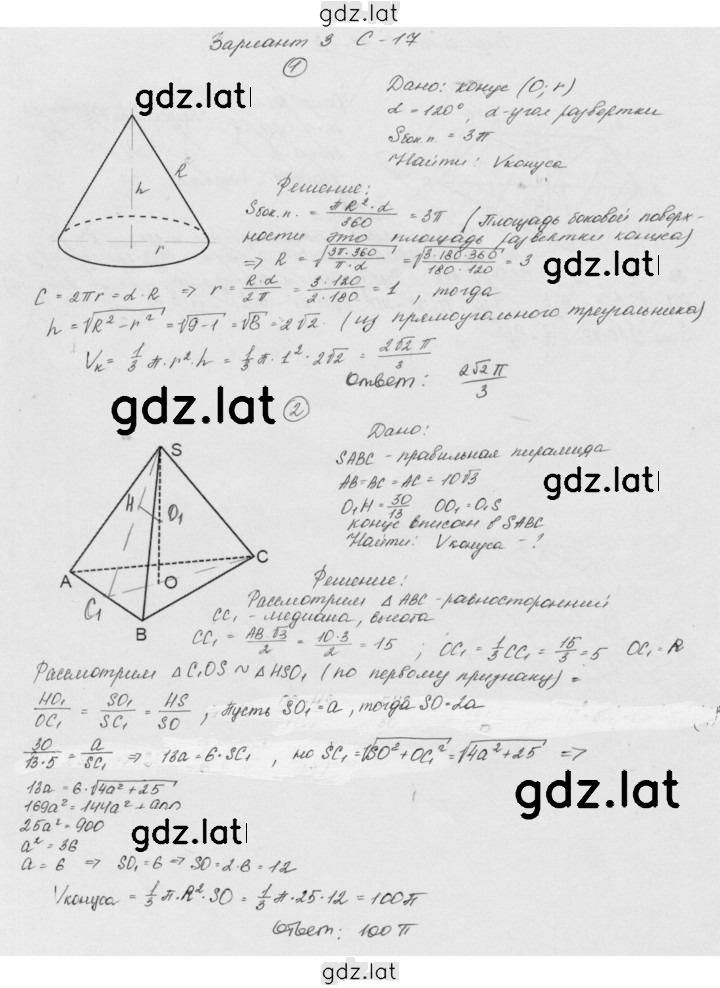 gdz.lat
Вариант 3 С-17
1
gdz.lat
Дано: конус (O; r)
α = 120°, α-угол развертки
Sбок.п. = 3π
Найти: Vконуса
R
h
r
Решение:
Sбок.п. = πR²·α/360 = 3π (Площадь боковой поверх-
ности это площадь развертки конуса)
⇒ R = √(3π·360/π·α) = √(3·180·360/180·120) = 3
C = 2πr = α·R ⇒ r = R·α/2π = 3·120/2·180 = 1, тогда
h = √(R²-r²) = √(9-1) = √8 = 2√2. (из прямоугольного треугольника)
Vк = 1/3 π·r²·h = 1/3 π·1²·2√2 = 2√2π/3
Ответ: 2√2π/3
gdz.lat
2
Дано:
SABC - правильная пирамида
AB=BC=AC=10√3
O₁H = 30/13 OO₁=O₁S
конус вписан в SABC
Найти: Vконуса - ?
gdz.lat
S
H
O₁
A
O
C
C₁
B
Решение:
Рассмотрим △ABC - равносторонний
CC₁ - медиана, высота
CC₁ = AB√3/2 = 10·3/2 = 15 ; OC₁ = 1/3 CC₁ = 15/3 = 5 OC₁ = R
Рассмотрим △C₁OS ~ △HSO₁ (по первому признаку) =
HO₁/OC₁ = SO₁/SC₁ = HS/SO, Пусть SO₁ = a, тогда SO = 2a
30/13·5 = a/SC₁ ⇒ 13a = 6·SC₁, но SC₁ = √(SO²+OC₁²) = √(4a²+25) ⇒
13a = 6·√(4a²+25)
169a² = 144a² +
25a² = 900
a² = 36
a = 6 ⇒ SO₁ = 6 ⇒ SO = 2·6 = 12
gdz.lat
gdz.lat
Vконуса = 1/3 π·R²·SO = 1/3 π·25·12 = 100π
Ответ: 100π
gdz.lat